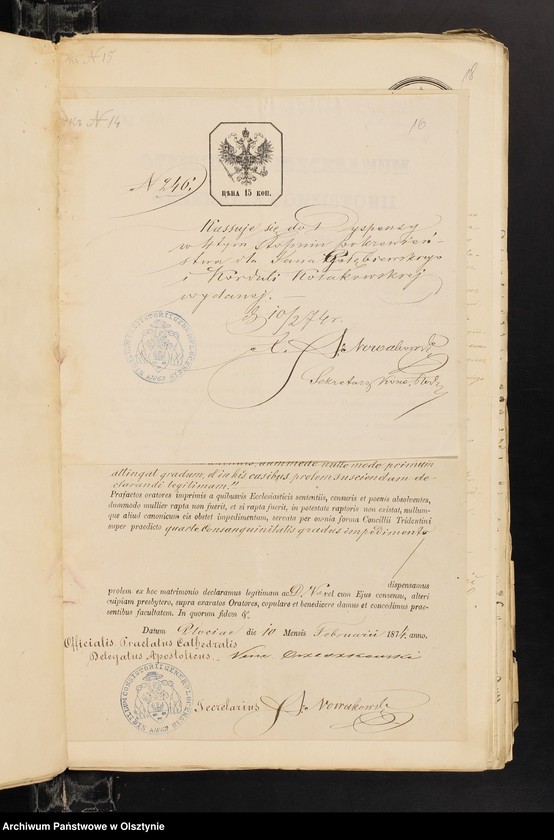 N 15
18
N 14
16
N 246.
ЦѢНА 15 КОП.
Kassuje się do t Dyspensy
w 4tym Stopniu pokrewień-
stwa dla Jana Gołębiewskiego
i Korduli Kołakowskiej
wydanej. —
D 10/2 74 r.
Nowakowski
Sekretarz Kons.
dummodo nullo modo primum
attingat gradum, et in his casibus prolem suscipiendam de-
clarandi legitimam."
Praefactos oratores imprimis a quibusvis Ecclesiasticis sententiis, censuris et poenis absolventes,
dummodo mullier rapta non fuerit, et si rapta fuerit, in potestate raptoris non existat, nullum-
que aliud canonicum eis obstet impedimentum, servata per omnia forma Concillii Tridentini
super praedicto quarto Consanguinitatis gradus impedimento
dispensamus
prolem ex hoc matrimonio declaramus legitimam ac D. Vo vel cum Ejus consensu, alteri
cuipiam presbytero, supra exaratos Oratores, copulare et benedicere damus et concedimus prae-
sentibus facultatem. In quorum fidem &.
Datum Plociae die 10 Mensis Februarii 1874. anno.
Officialis Praelatus Cathedralis
Delegatus Apostolicus.
Secretarius Nowakowski
Archiwum Państwowe w Olsztynie